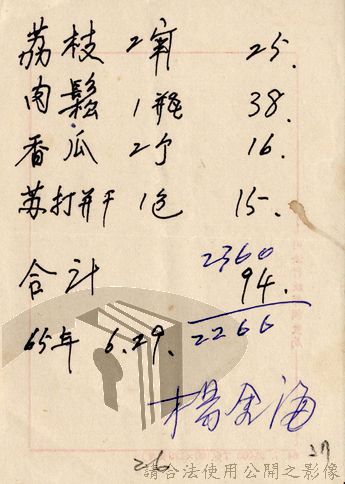 荔枝 2斤 25.
肉鬆 1瓶 38.
香瓜 2个 16.
苏打并干 1包 15.
2360
合计 94.
65年 6.29. 2266
楊金海
26
27
請合法使用公開之影像